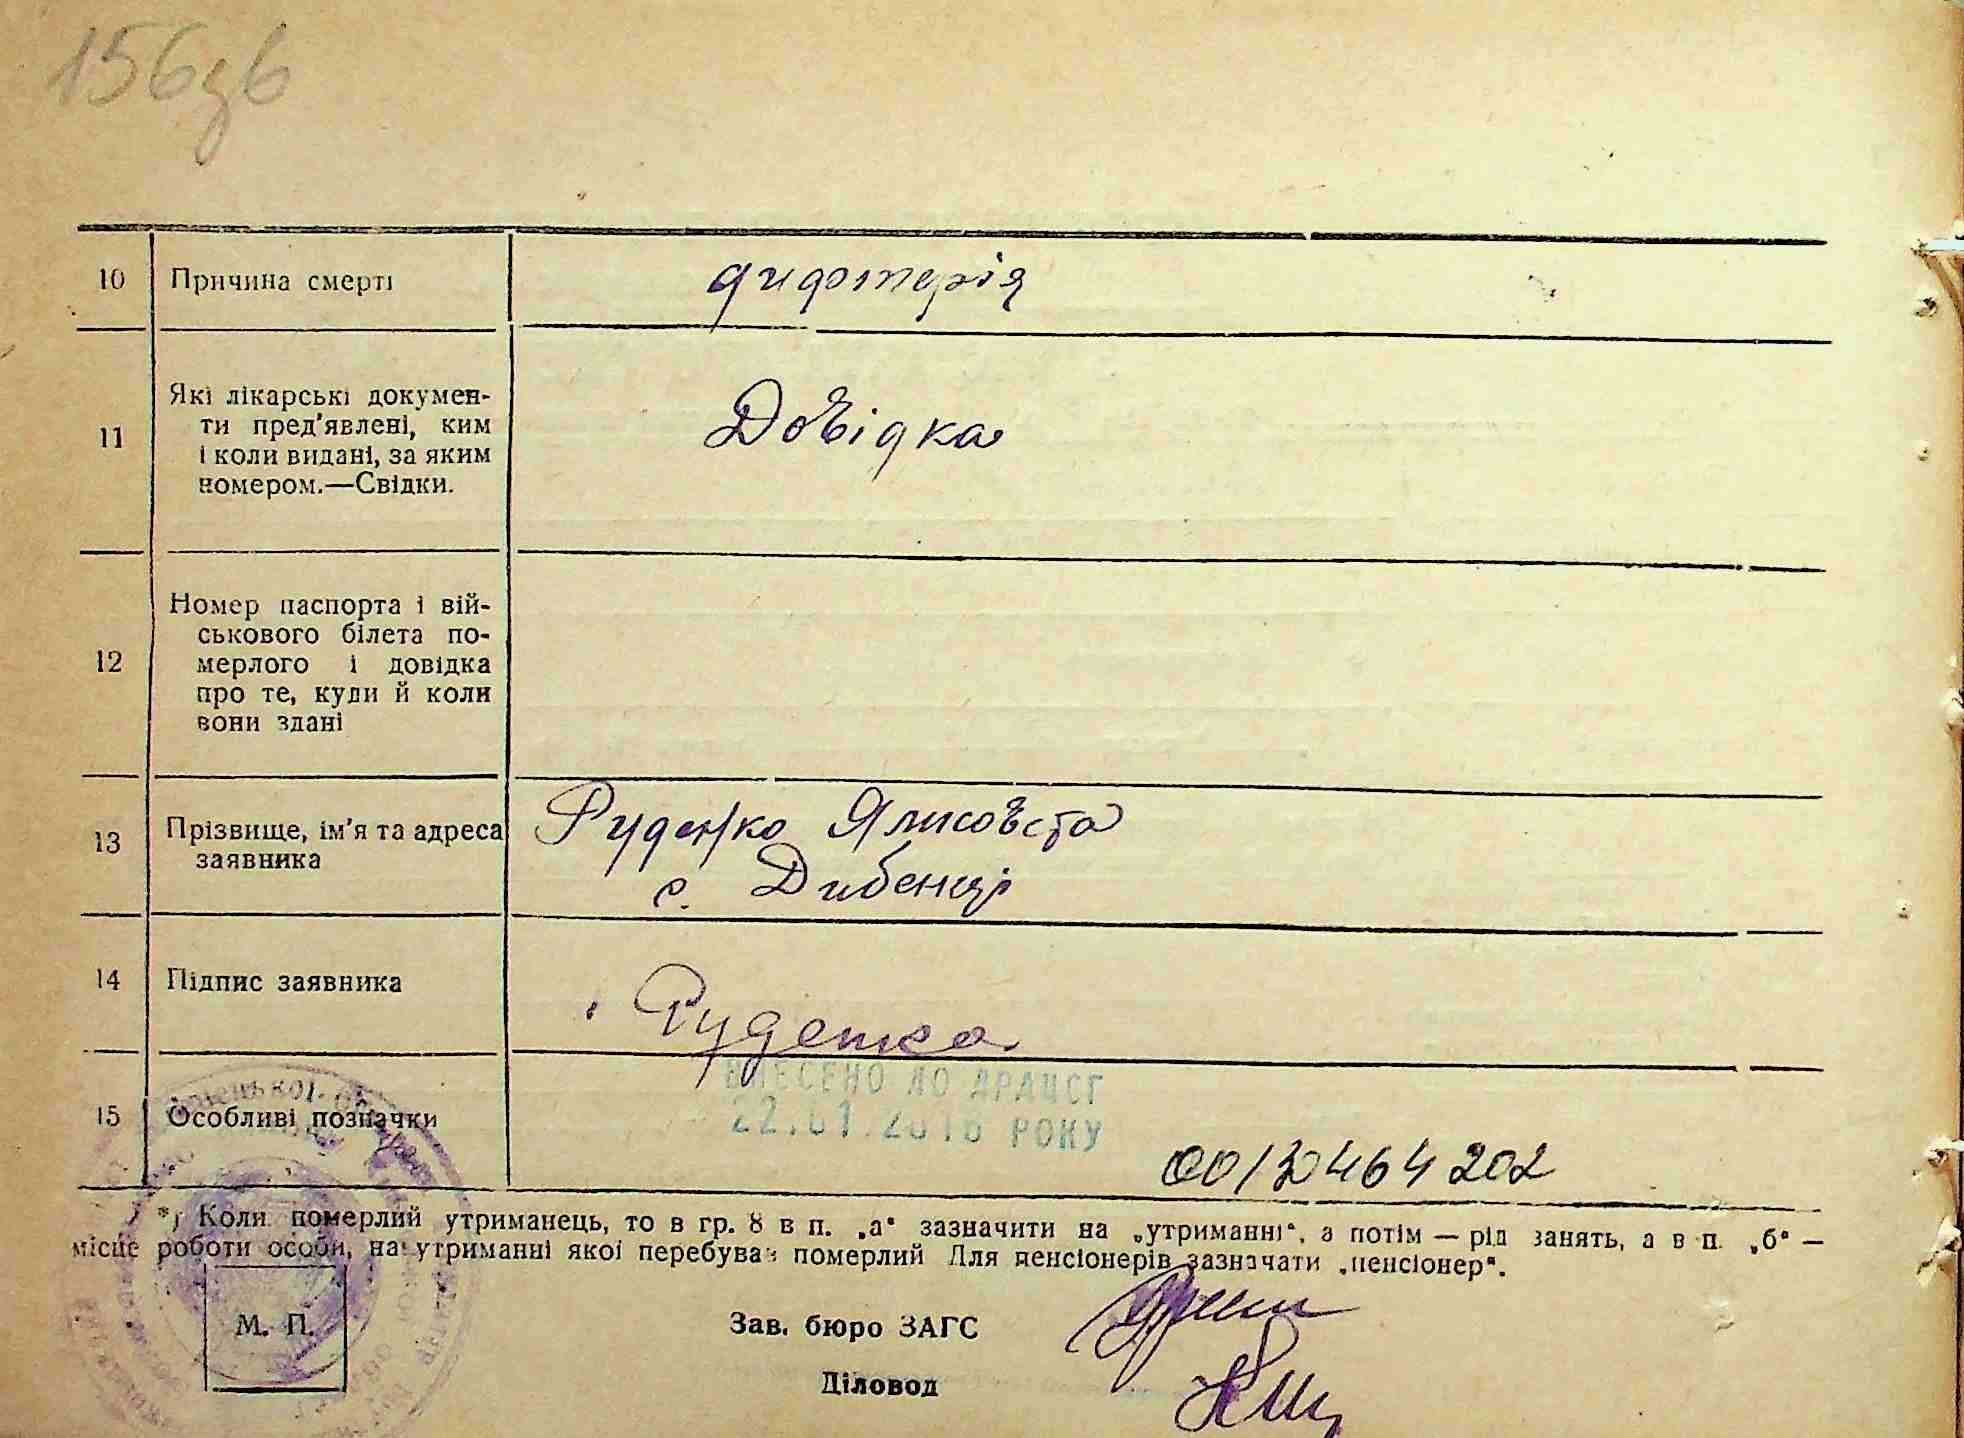 156зв
10 Причина смерті дифтерія
11 Які лікарські докумен-
ти пред'явлені, ким
і коли видані, за яким
номером.—Свідки.
Довідка
12 Номер паспорта і вій-
ськового білета по-
мерлого і довідка
про те, куди й коли
вони здані
13 Прізвище, ім'я та адреса
заявника
Руденко Ялисовета
с. Дибенці
14 Підпис заявника Руденко
ВНЕСЕНО ДО ДРАЦСГ
22.01.2018 РОКУ
15 Особливі позначки
00130464202
*) Коли померлий утриманець, то в гр. 8 в п. „а“ зазначити на „утриманні“, а потім — рід занять, а в п. „б“ —
місце роботи особи, на утриманні якої перебував померлий Для пенсіонерів зазначати „пенсіонер“.
М. П.
Зав. бюро ЗАГС
Діловод